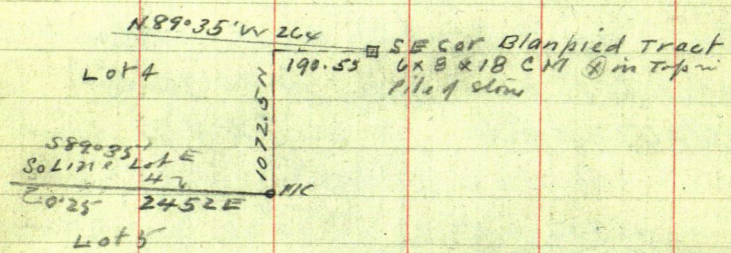 N 89° 35' W 264
SE Cor Blanpied Tract
190.55
6 x 8 x 18 CM X in Top in
Pile of Stone
Lot 4
1072.5 N
S 89° 35' E
So Line Lot
MC
2452 E
Lot 5